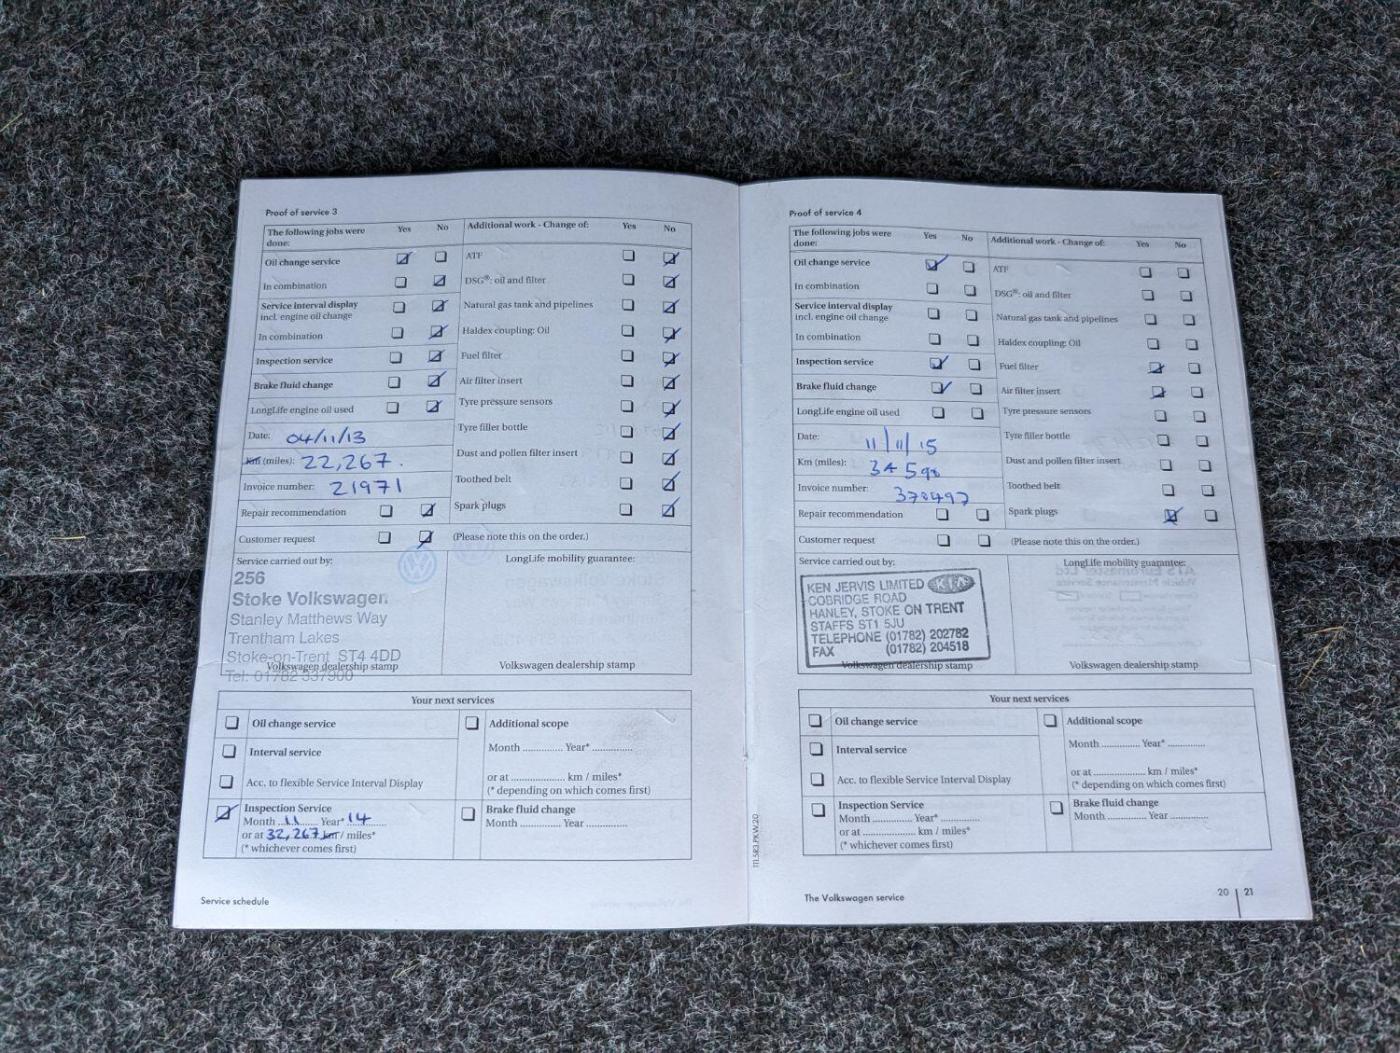 Proof of service 3
The following jobs were done: Yes No
Oil change service
In combination
Service interval display
incl. engine oil change
In combination
Inspection service
Brake fluid change
LongLife engine oil used
Date: 04/11/13
km (miles): 22,267.
Invoice number: 21971
Repair recommendation
Customer request
Additional work - Change of: Yes No
ATF
DSG®: oil and filter
Natural gas tank and pipelines
Haldex coupling: Oil
Fuel filter
Air filter insert
Tyre pressure sensors
Tyre filler bottle
Dust and pollen filter insert
Toothed belt
Spark plugs
(Please note this on the order.)
Service carried out by:
256
Stoke Volkswagen
Stanley Matthews Way
Trentham Lakes
Stoke-on-Trent ST4 4DD
Tel: 01782 337900
Volkswagen dealership stamp
LongLife mobility guarantee:
Volkswagen dealership stamp
Your next services
Oil change service
Interval service
Acc. to flexible Service Interval Display
Inspection Service
Month 11 Year* 14
or at 32,267 km / miles*
(* whichever comes first)
Additional scope
Month .............. Year* ..............
or at .................... km / miles*
(* depending on which comes first)
Brake fluid change
Month .............. Year ..............
Service schedule
Proof of service 4
The following jobs were done: Yes No
Oil change service
In combination
Service interval display
incl. engine oil change
In combination
Inspection service
Brake fluid change
LongLife engine oil used
Date: 11/11/15
Km (miles):
Invoice number:
Repair recommendation
Customer request
Additional work - Change of: Yes No
ATF
DSG®: oil and filter
Natural gas tank and pipelines
Haldex coupling: Oil
Fuel filter
Air filter insert
Tyre pressure sensors
Tyre filler bottle
Dust and pollen filter insert
Toothed belt
Spark plugs
(Please note this on the order.)
Service carried out by:
KEN JERVIS LIMITED KIA
COBRIDGE ROAD
HANLEY, STOKE ON TRENT
STAFFS ST1 5JU
TELEPHONE (01782) 202782
FAX (01782) 204518
Volkswagen dealership stamp
LongLife mobility guarantee:
Volkswagen dealership stamp
Your next services
Oil change service
Interval service
Acc. to flexible Service Interval Display
Inspection Service
Month .............. Year* ..............
or at .................... km / miles*
(* whichever comes first)
Additional scope
Month .............. Year* ..............
or at .................... km / miles*
(* depending on which comes first)
Brake fluid change
Month .............. Year ..............
The Volkswagen service
20 | 21